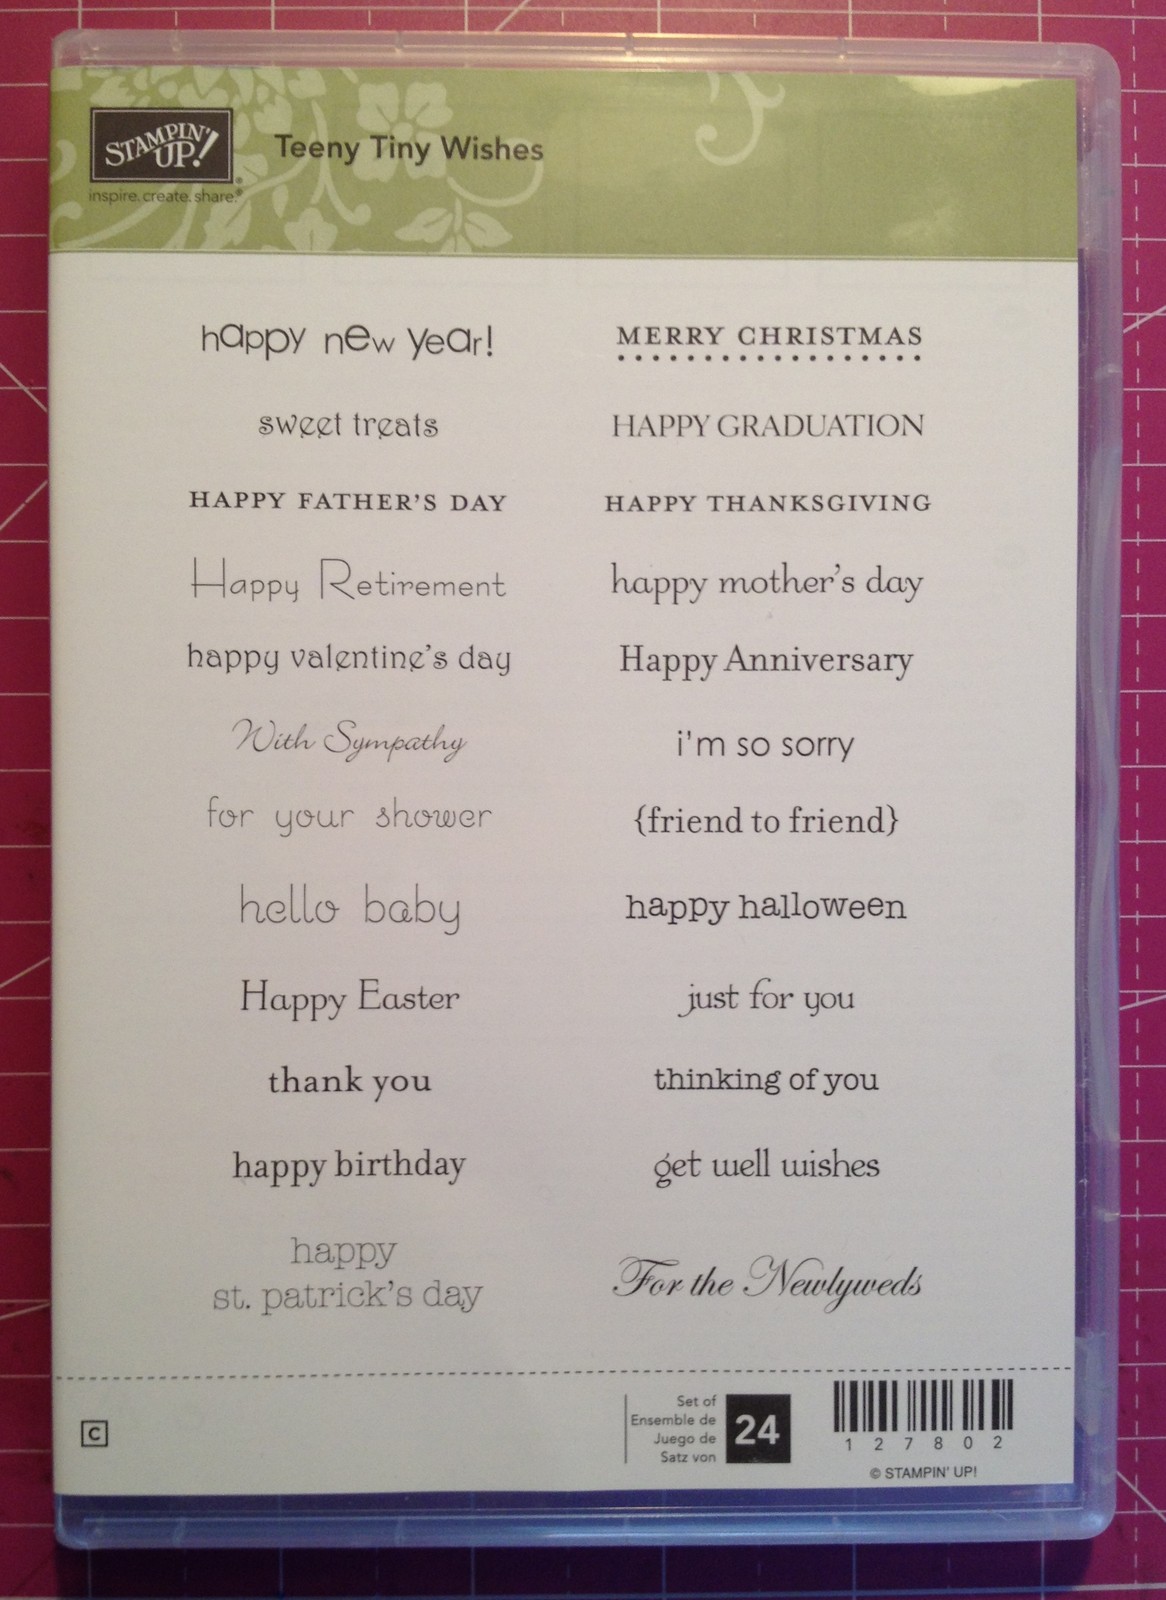 STAMPIN' UP!®
inspire. create. share.®
Teeny Tiny Wishes
happy new year!
MERRY CHRISTMAS
sweet treats
HAPPY GRADUATION
HAPPY FATHER'S DAY
HAPPY THANKSGIVING
Happy Retirement
happy mother's day
happy valentine's day
Happy Anniversary
With Sympathy
i'm so sorry
for your shower
{friend to friend}
hello baby
happy halloween
Happy Easter
just for you
thank you
thinking of you
happy birthday
get well wishes
happy
st. patrick's day
For the Newlyweds
C
Set of
Ensemble de
Juego de
Satz von
24
127802
© STAMPIN' UP!